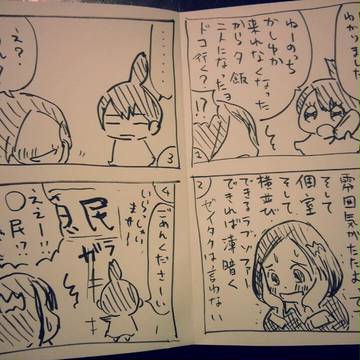 わかりました
ねーのっち
かしゆか
来れなくなった
から夕飯
二人になったよ
ドコ行く？!?
②
そして
個室
そして
横並び
ラブソファー
できれば薄暗く
ゼイタクは言わない
③
………
え？
④
ごめんくださいー
いらっしゃい
ませー
民
ガラ
ええー!!
○民!?